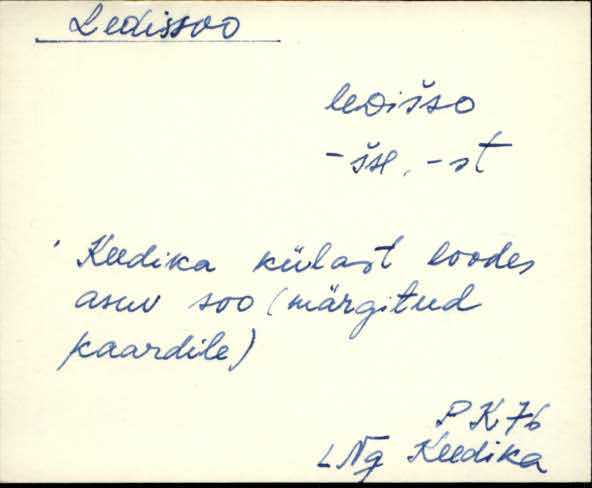 Ledissoo
leDišso
-šsɘ, -st
Keedika külast loodes
asuv soo (märgitud
kaardile)
PK 76
LNg Keedika